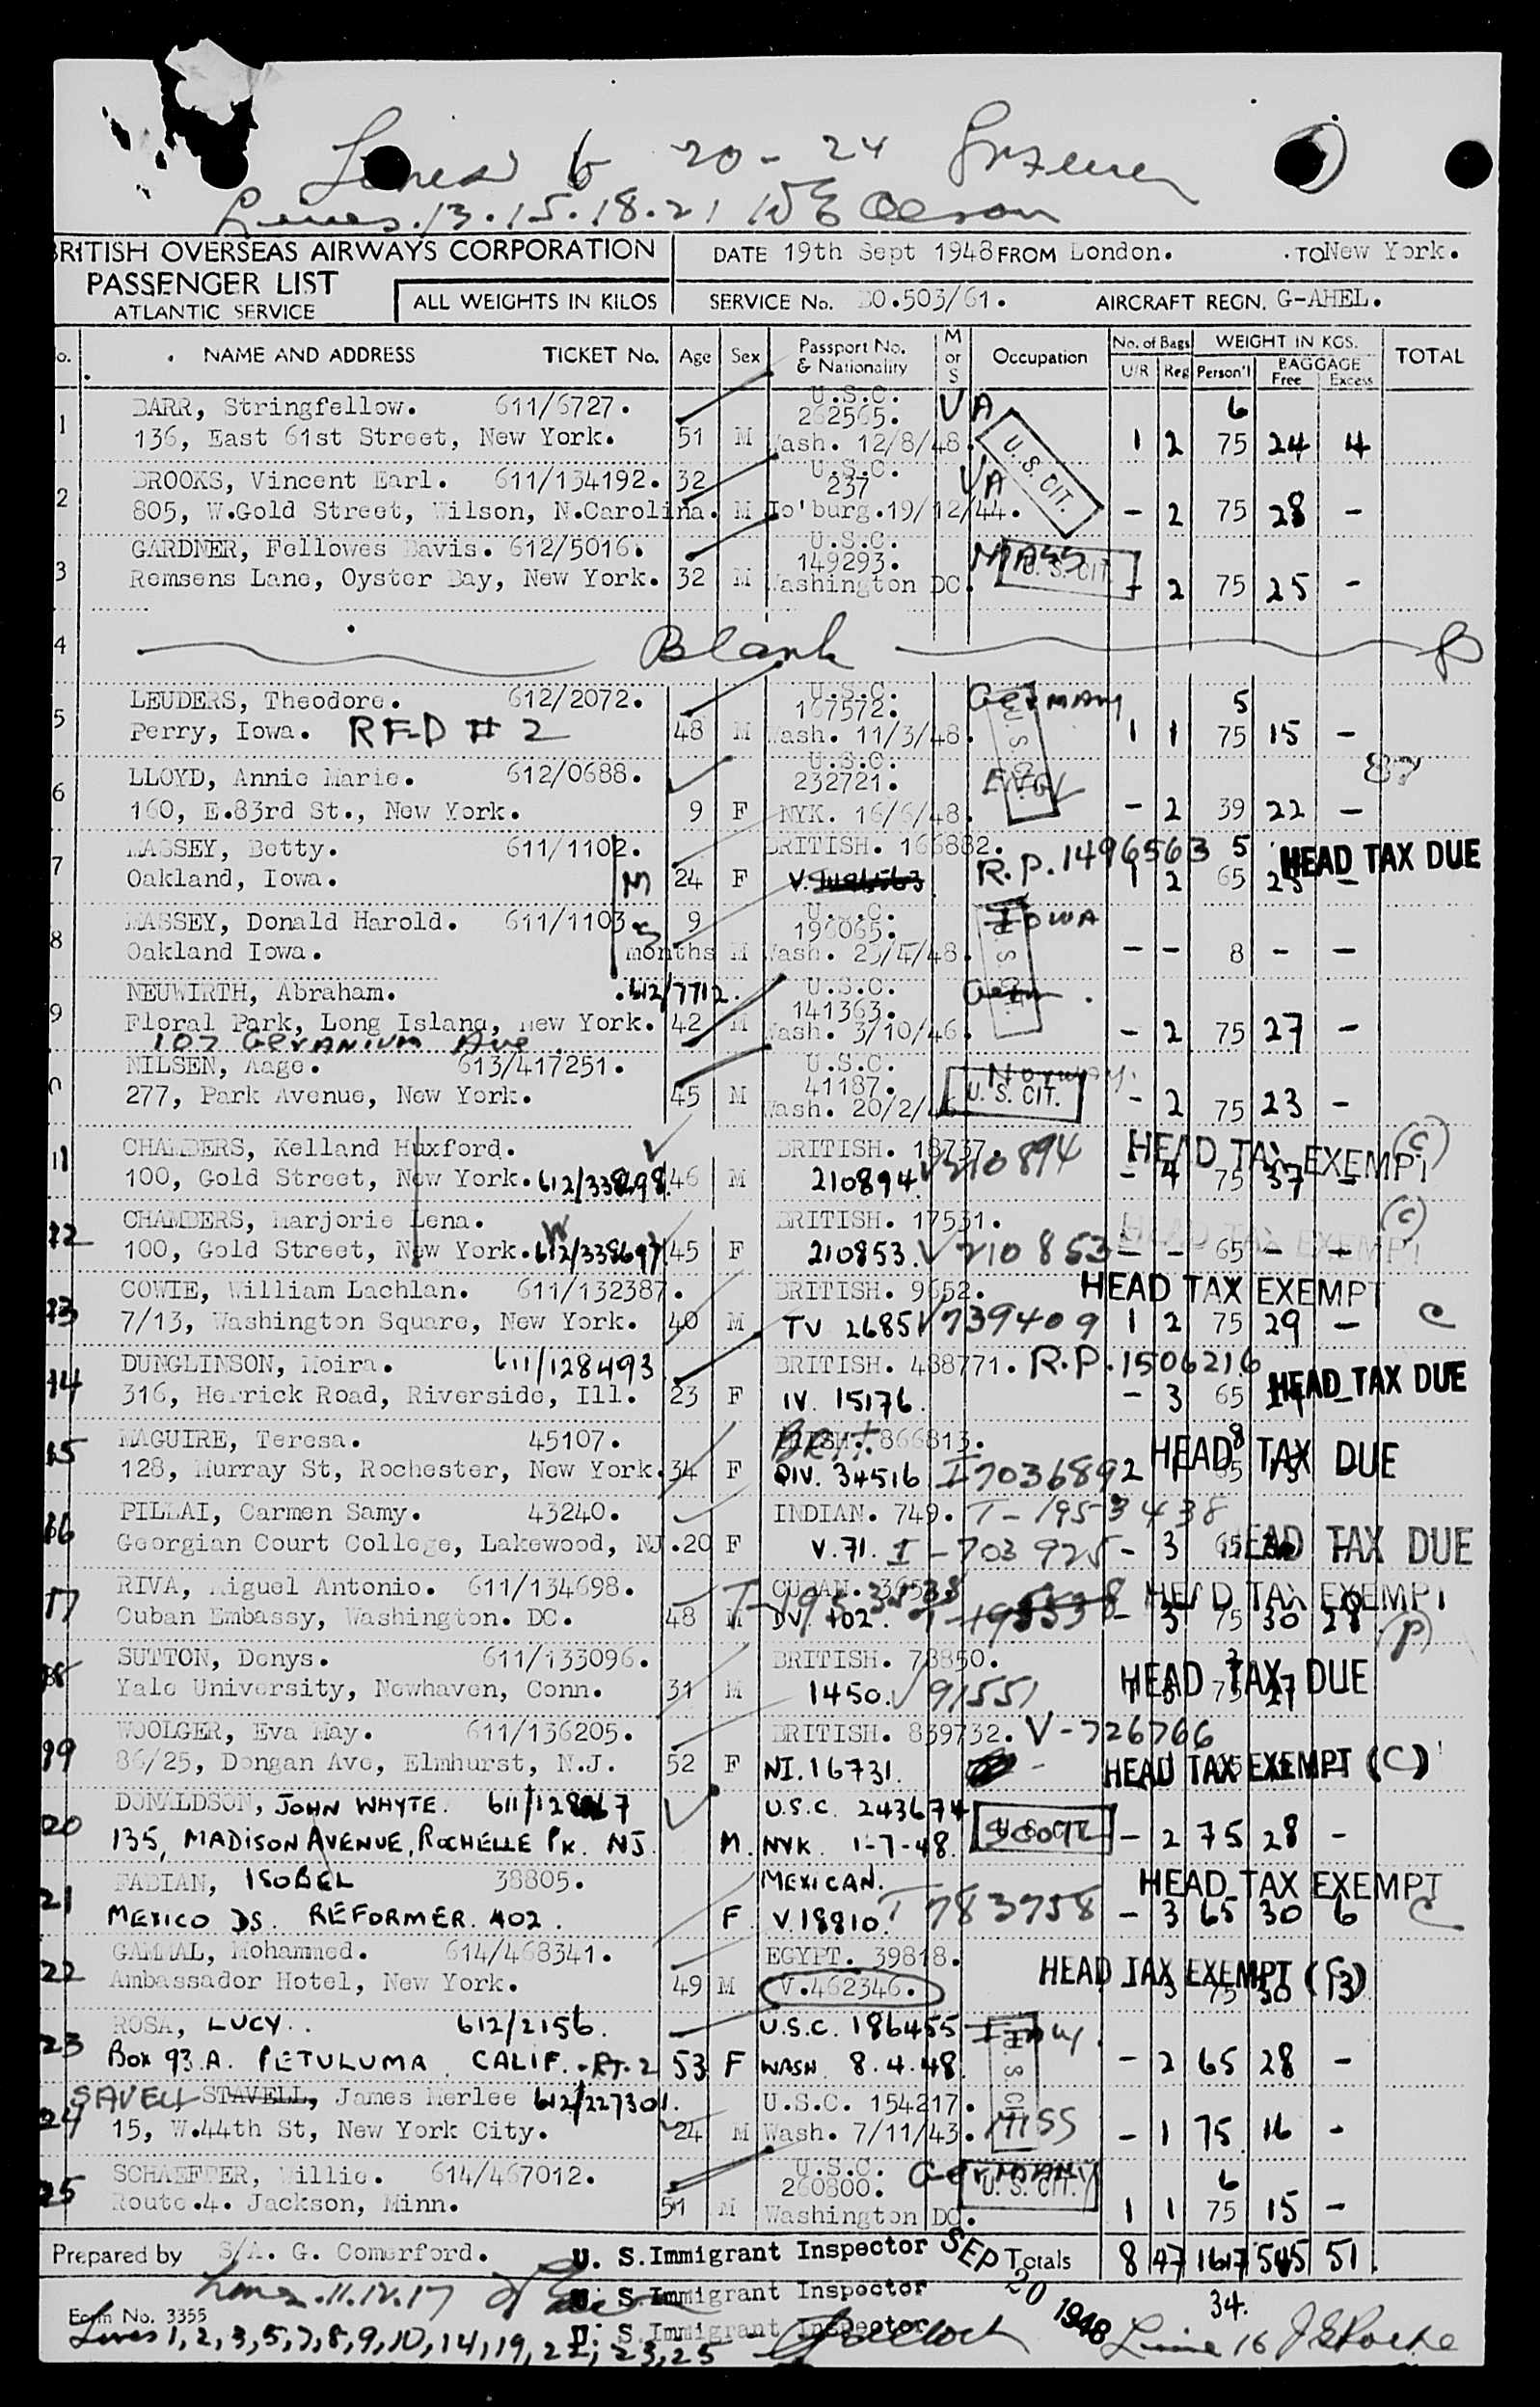 Lines 6 20 - 24
Lines. 13. 15. 18. 21 W E Olson
BRITISH OVERSEAS AIRWAYS CORPORATION
PASSENGER LIST
ATLANTIC SERVICE
ALL WEIGHTS IN KILOS
DATE 19th Sept 1948 FROM London. TO New York.
SERVICE No. BO.503/61. AIRCRAFT REGN. G-AHEL.
No. NAME AND ADDRESS TICKET No. Age Sex Passport No. & Nationality M or S Occupation No. of Bags U/R Reg WEIGHT IN KGS. Person'l BAGGAGE Free Excess TOTAL
1 BARR, Stringfellow. 611/6727. U.S.C. 262565. VA 6
136, East 61st Street, New York. 51 M Wash. 12/8/48. U.S. CIT. 1 2 75 24 4
2 BROOKS, Vincent Earl. 611/134192. 32 U.S.C. 237 VA
805, W.Gold Street, Wilson, N.Carolina. M Jo'burg.19/12/44. - 2 75 28 -
3 GARDNER, Fellowes Davis. 612/5016. U.S.C. 149293. MASS
Remsens Lane, Oyster Bay, New York. 32 M Washington DC. U. S. CIT. - 2 75 25 -
4 Blank
5 LEUDERS, Theodore. 612/2072. U.S.C. 167572. Germany 5
Perry, Iowa. RFD # 2 48 M Wash. 11/3/48. U. S. CIT. 1 1 75 15 -
6 LLOYD, Annie Marie. 612/0688. U.S.C. 232721. ENGL
160, E.83rd St., New York. 9 F NYK. 16/6/48. - 2 39 22 -
7 MASSEY, Betty. 611/1102. BRITISH. 166882. R.P. 1496563 5 HEAD TAX DUE
Oakland, Iowa. M 24 F V. 1 2 65 -
8 MASSEY, Donald Harold. 611/1103 9 U.S.C. 196065. IOWA
Oakland Iowa. months M Wash. - - 8 - -
9 NEUWIRTH, Abraham. 612/7712. U.S.C. 141363.
Floral Park, Long Island, New York. 42 M Wash. 3/10/46. - 2 75 27 -
107 GERANIUM Ave
NILSEN, Aage. 613/417251. U.S.C. 41187. Norway.
277, Park Avenue, New York. 45 M Wash. U. S. CIT. - 2 75 23 -
11 CHAMBERS, Kelland Huxford. BRITISH. 18737. V210894 HEAD TAX EXEMPT (C)
100, Gold Street, New York. 46 M 210894 - 4 75 37 -
12 CHAMBERS, Marjorie Lena. W BRITISH. 17531. HEAD TAX EXEMPT (C)
100, Gold Street, New York. 612/338697 45 F 210853. V210853 - - 65 - -
13 COWIE, William Lachlan. 611/132387. BRITISH. 9652. HEAD TAX EXEMPT
7/13, Washington Square, New York. 40 M TV 2685 V739409 1 2 75 29 - C
14 DUNGLINSON, Moira. 611/128493 BRITISH. 488771. R.P. 1506216 HEAD TAX DUE
316, Herrick Road, Riverside, Ill. 23 F IV. 15176. - 3 65
15 MAGUIRE, Teresa. 45107. Brit. 866813. 8 HEAD TAX DUE
128, Murray St, Rochester, New York. 34 F QIV. 34516 I 7036892
16 PILLAI, Carmen Samy. 43240. INDIAN. 749. T-1953438
Georgian Court College, Lakewood, NJ. 20 F V.71. I-703925 - 3 65 HEAD TAX DUE
17 RIVA, Miguel Antonio. 611/134698. CUBAN. HEAD TAX EXEMPT
Cuban Embassy, Washington. DC. 48 M DV. 102. 75 30 28 (P)
18 SUTTON, Denys. 611/133096. BRITISH. 78850. HEAD TAX DUE
Yale University, Newhaven, Conn. 31 M 1450. V 91551 75
19 WOOLGER, Eva May. 611/136205. BRITISH. 839732. V-726766
86/25, Dongan Ave, Elmhurst, N.J. 52 F NI.16731. HEAD TAX EXEMPT (C)
20 DONALDSON, JOHN WHYTE. U.S.C. 243674
135, MADISON AVENUE, ROCHELLE PK. NJ. M. NYK. 1-7-48. - 2 75 28 -
21 FABIAN, ISOBEL 38805. MEXICAN. HEAD TAX EXEMPT
MEXICO DS. REFORMER. 402. F. V.18810. T 783758 - 3 65 30 6 C
22 GAMMAL, Mohammed. 614/468341. EGYPT. 39818.
Ambassador Hotel, New York. 49 M V.462346. HEAD TAX EXEMPT 3 75 30
23 ROSA, LUCY.. 612/2156. U.S.C. 186455
Box 93.A. PETULUMA CALIF. - RT. 2 53 F WASH 8.4.48. - 2 65 28 -
24 SAVELL STAVELL, James Merlee 612/227301. U.S.C. 154217.
15, W.44th St, New York City. 24 M Wash. 7/11/43. MISS - 1 75 16 -
25 SCHAEFFER, Willie. 614/467012. U.S.C. 260800. GERMANY 6
Route.4. Jackson, Minn. 51 M Washington DC. U. S. CIT. 1 1 75 15 -
Prepared by S/A. G. Comerford. U. S. Immigrant Inspector SEP 20 1948 Totals 8 47 1617 545 51.
Lines. 11. 12. 17 U. S. Immigrant Inspector 34.
Form No. 3355 U. S. Immigrant Inspector
Lines 1, 2, 3, 5, 7, 8, 9, 10, 14, 19, 22, 23, 25 Line 16